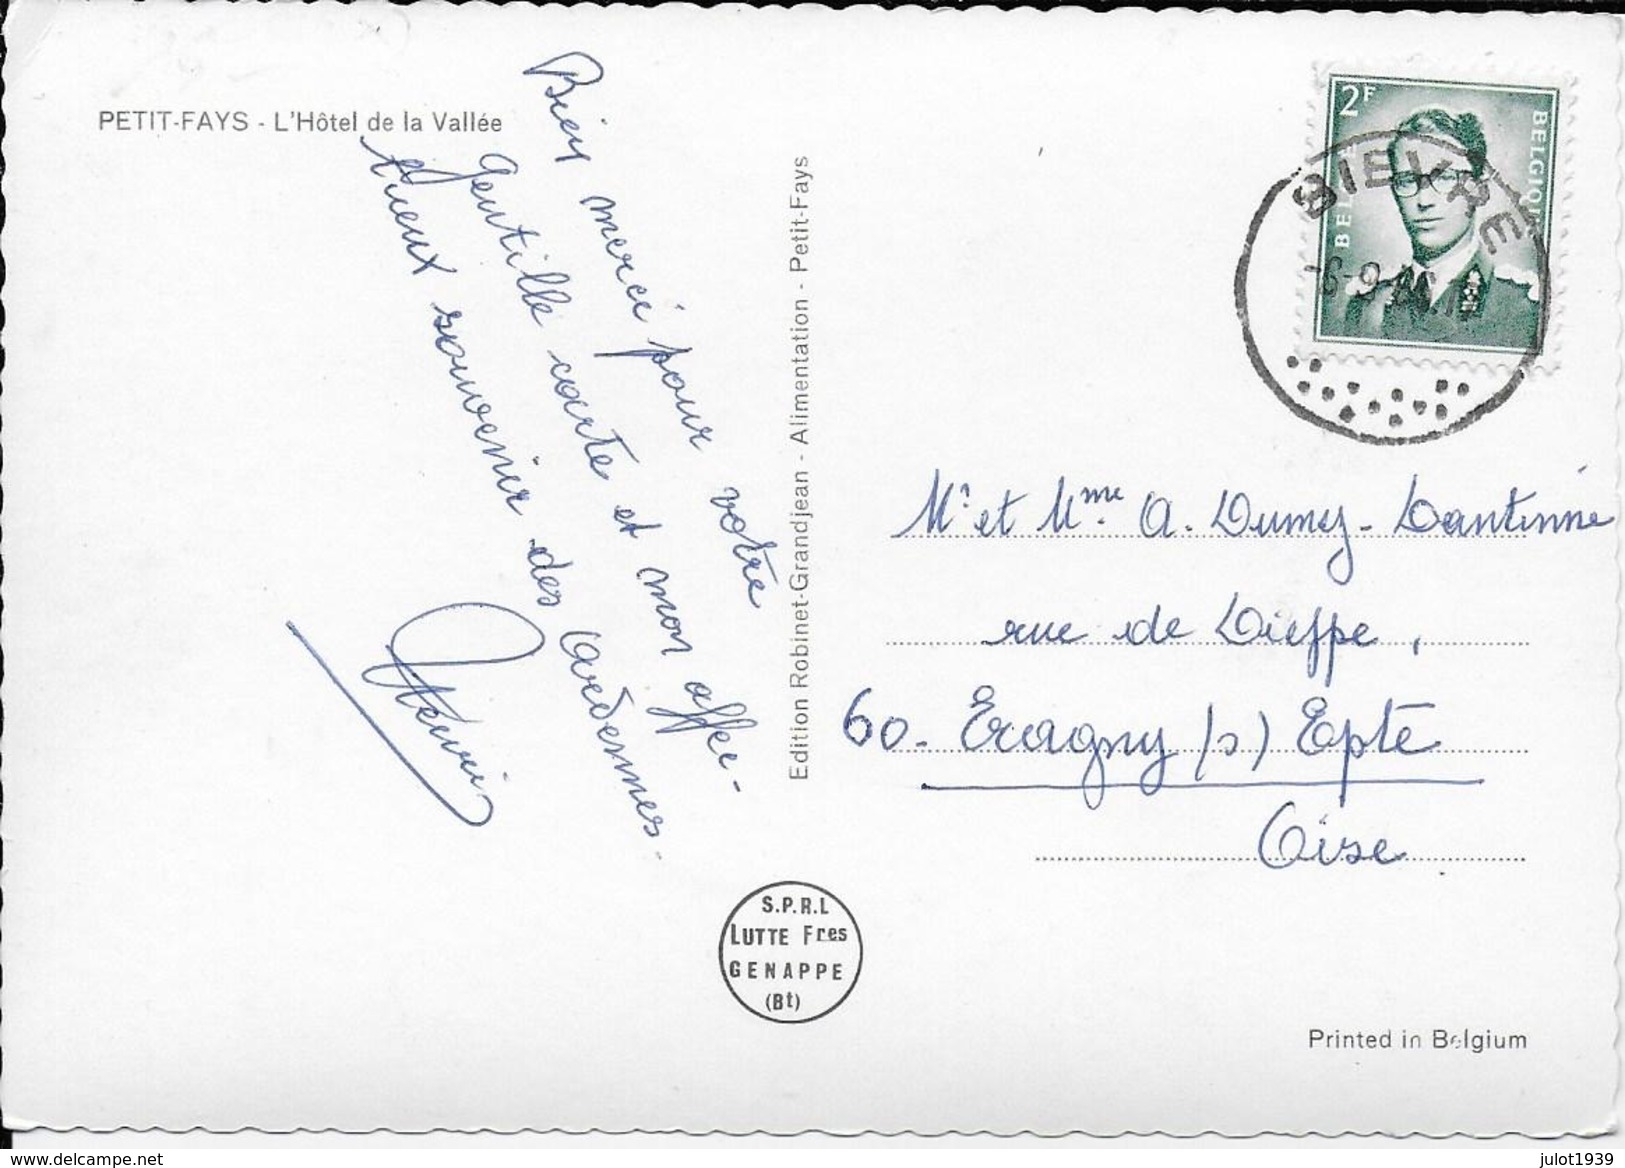 PETIT-FAYS - L'Hôtel de la Vallée
Bien merci pour votre
gentille carte et mon affec-
tueux souvenir des Ardennes.
Edition Robinet-Grandjean - Alimentation - Petit-Fays
2F
BELGIQUE
BIEVRE
Mr et Mme A. Dumez-Dantinne
rue de Dieppe,
60. Eragny (s) Epte
Oise
S.P.R.L
LUTTE Fres
GENAPPE
(Bt)
Printed in Belgium
delcampe.net
julot1939